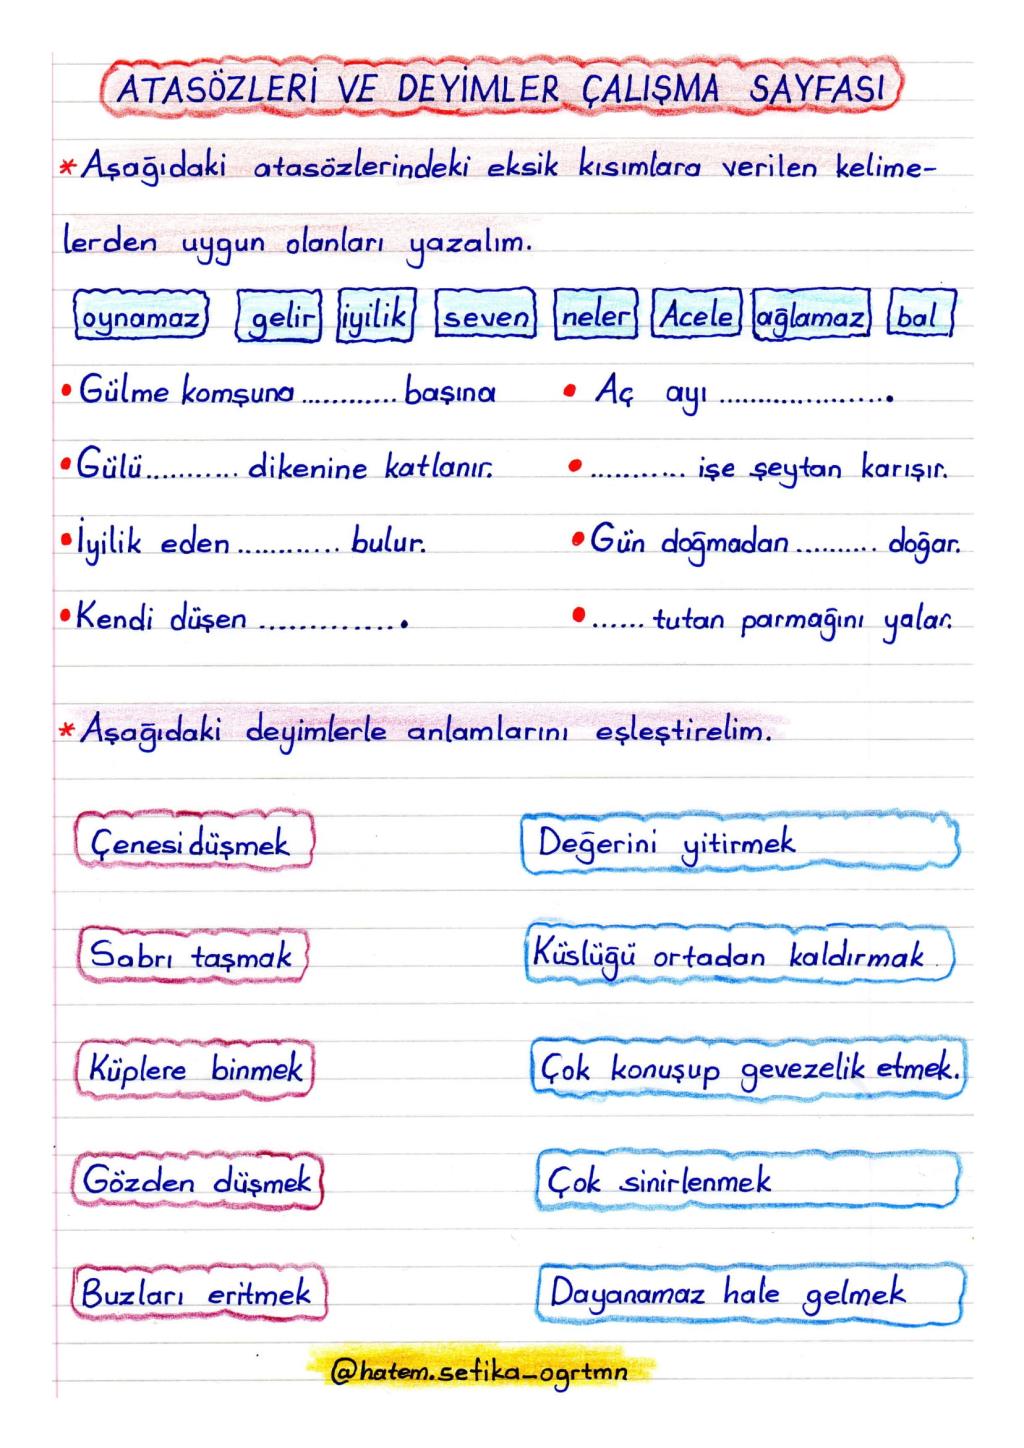 ATASÖZLERİ VE DEYİMLER ÇALIŞMA SAYFASI
* Aşağıdaki atasözlerindeki eksik kısımlara verilen kelime-
lerden uygun olanları yazalım.
oynamaz gelir iyilik seven neler Acele ağlamaz bal
• Gülme komşuna ............ başına • Aç ayı .....................
• Gülü ........... dikenine katlanır. • ............ işe şeytan karışır.
• İyilik eden ............ bulur. • Gün doğmadan .......... doğar.
• Kendi düşen ............... • ...... tutan parmağını yalar.
* Aşağıdaki deyimlerle anlamlarını eşleştirelim.
Çenesi düşmek Değerini yitirmek
Sabrı taşmak Küslüğü ortadan kaldırmak.
Küplere binmek Çok konuşup gevezelik etmek.
Gözden düşmek Çok sinirlenmek
Buzları eritmek Dayanamaz hale gelmek
@hatem.sefika_ogrtmn